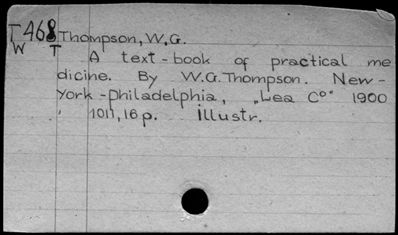 T468 Thompson, W.G.
W T
A text-book of practical me
dicine. By W.G. Thompson. New-
York-Philadelphia, „Lea Co" 1900
1011, 16 p. Illustr.